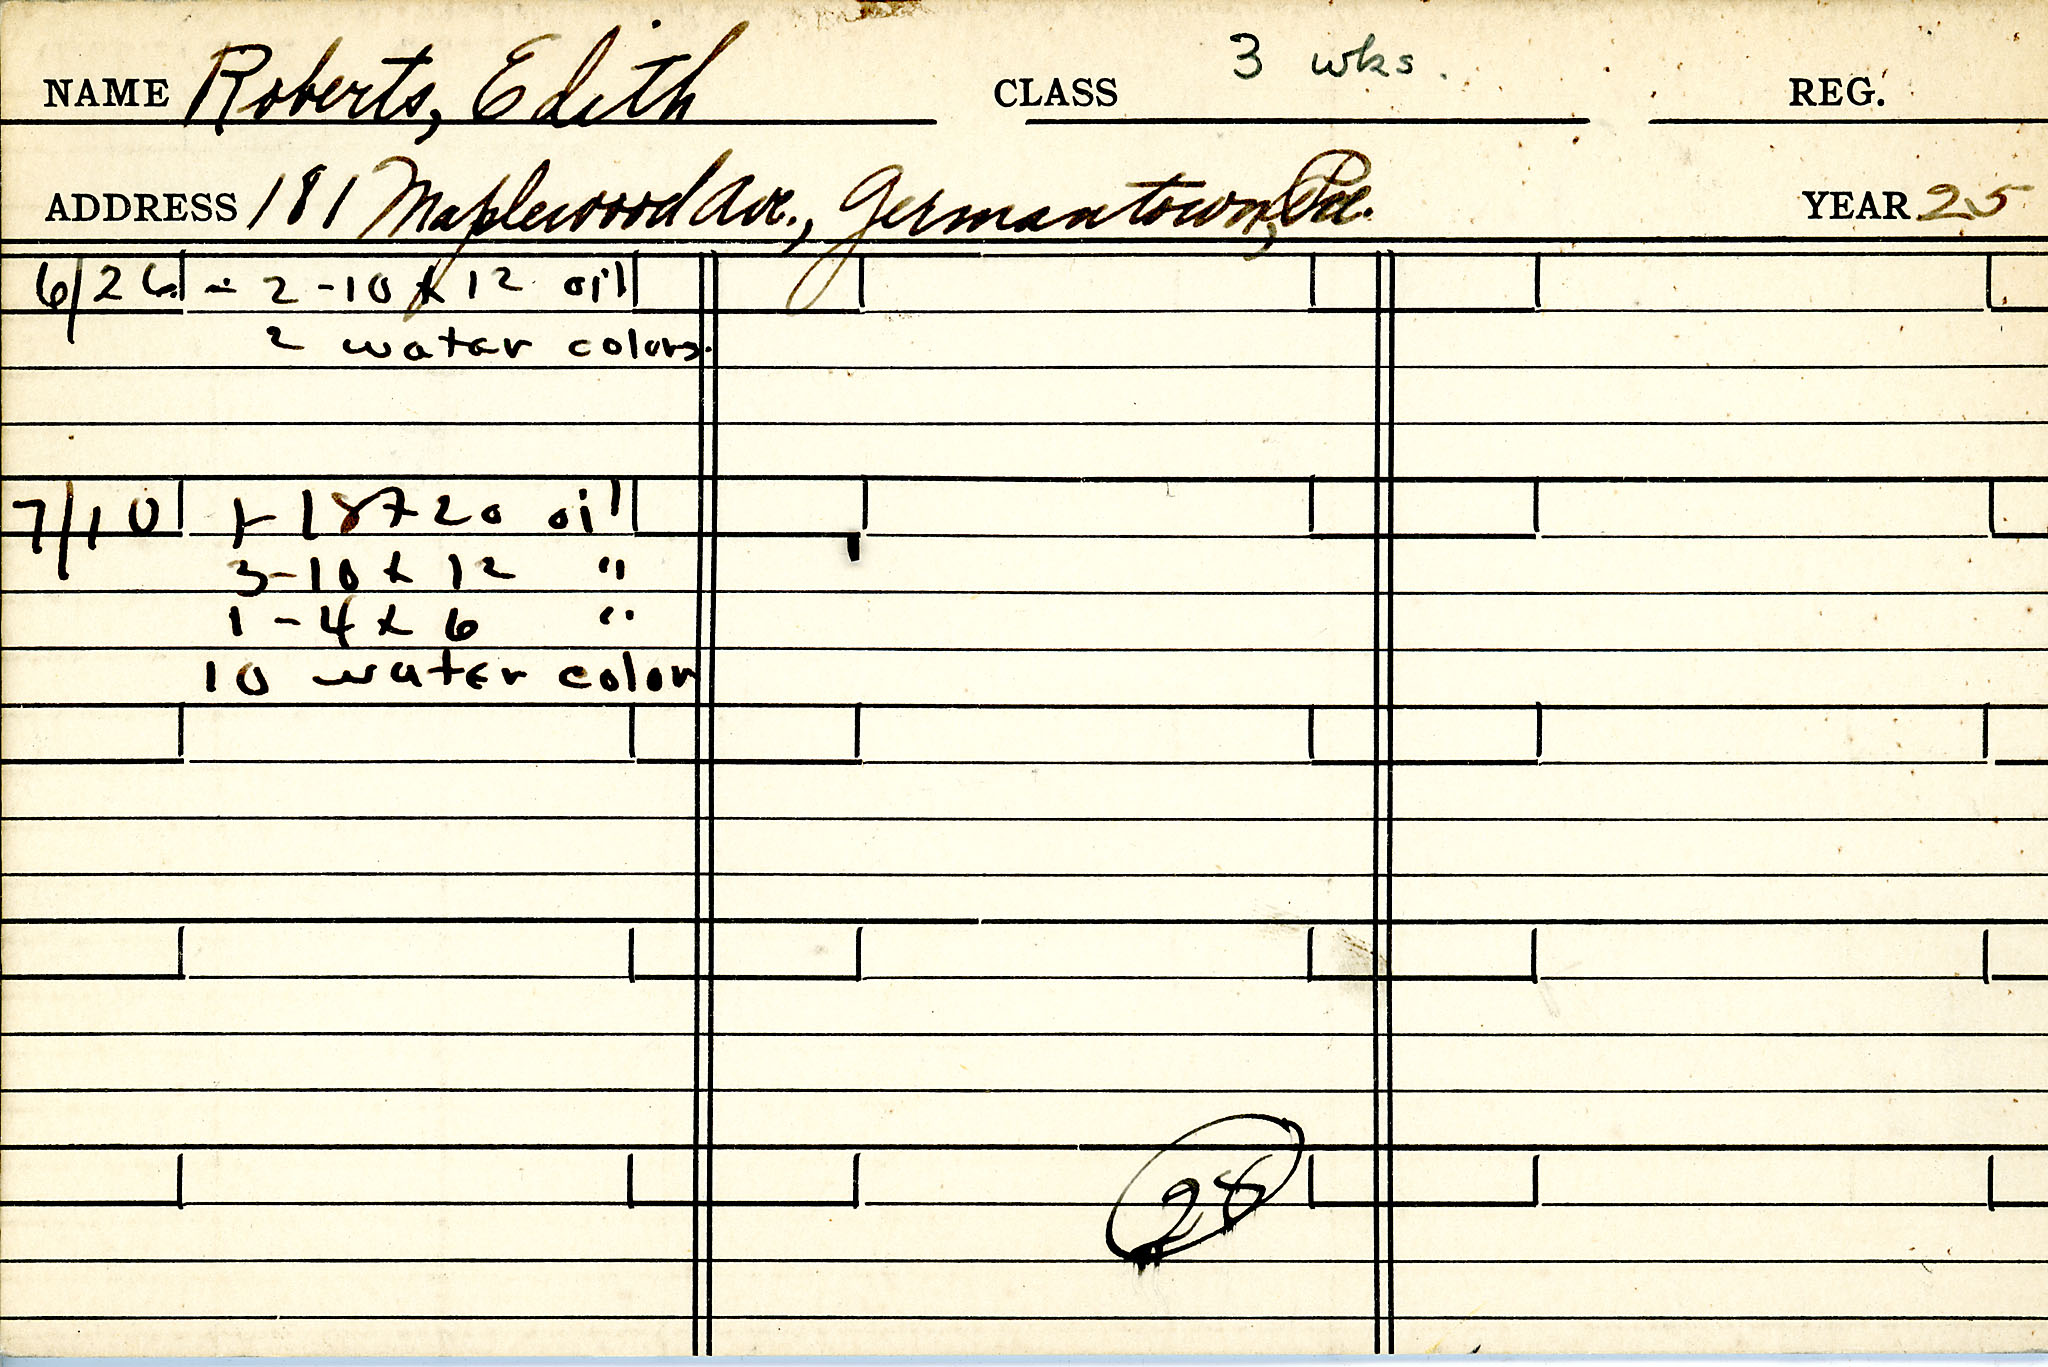 NAME Roberts, Edith CLASS 3 wks. REG.
ADDRESS 181 Maplewood Ave., Germantown, Pa. YEAR 25
6/26 - 2-10 x 12 oil
2 water colors.
7/10 1-18x20 oil
3-10 x 12 "
1-4 x 6 "
10 water color
28